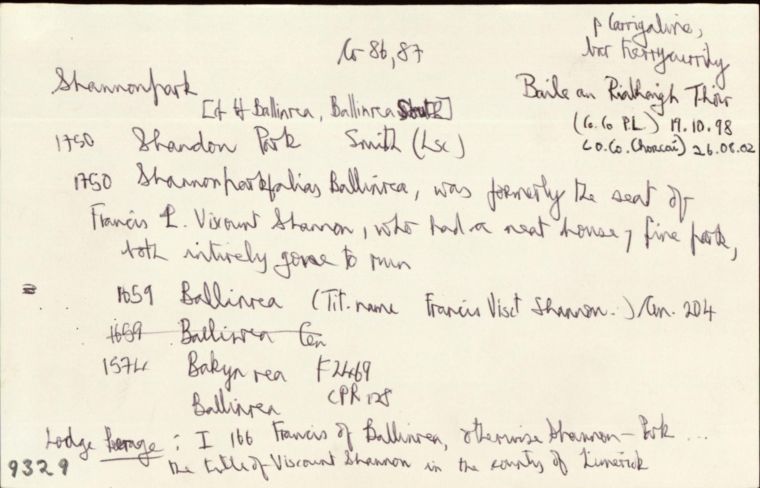 Co 86, 87
p Carrigaline,
bar Kerrycurrihy
Shannonpark
Baile an Riabhaigh Thoir
[cf. Ballinrea, Ballinrea South]
(Co. Co P.L.) 19.10.98
(O.Co.Chorcaí) 26.08.02
1750 Shandon Park Smith (Lsc)
1750 Shannonpark, alias Ballinrea, was formerly the seat of
Francis L. Viscount Shannon, who had a neat house, fine park,
both intirely gone to ruin
1659 Ballinrea (Tit. name Francis Visct Shannon.) Cen. 204
1659 Ballinrea Cen
1574 Bakyn rea F 2469
Ballinrea CPR 128
Lodge Peerage : I 166 Francis of Ballinrea, otherwise Shannon-Park ...
the title of Viscount Shannon in the county of Limerick
9329